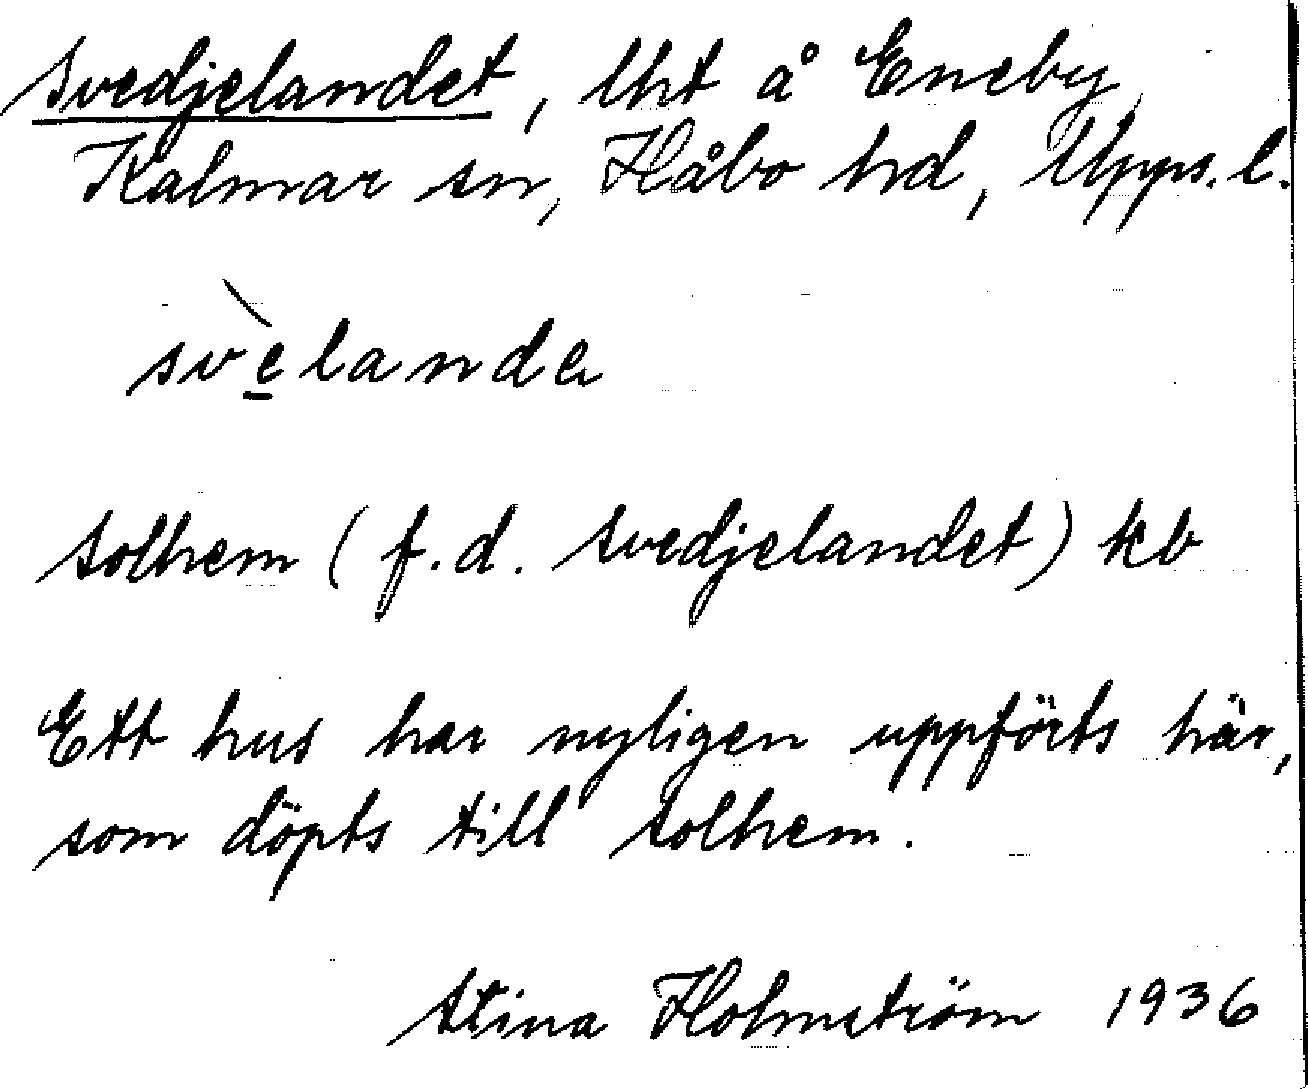 Svedjelandet, lht å Eneby,
Kalmar sn, Håbo hd, Upps. l.
svèlande
Solhem (f.d. Svedjelandet) kb
Ett hus har nyligen uppförts här,
som döpts till Solhem.
Stina Holmström 1936